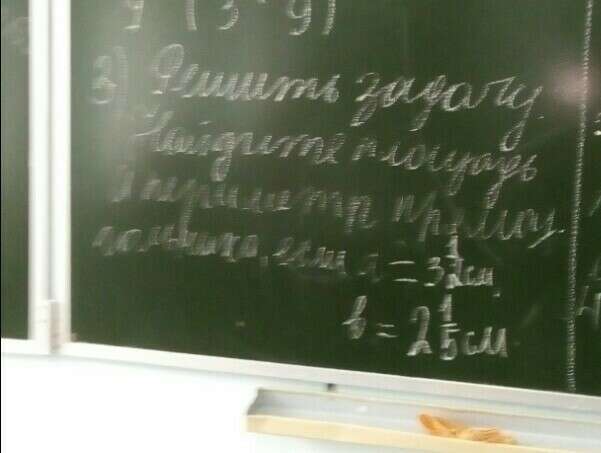 3) Решить задачу.
Найдите площадь
и периметр прямоу-
гольника, если a = 3 1/2 см,
b = 2 1/5 см